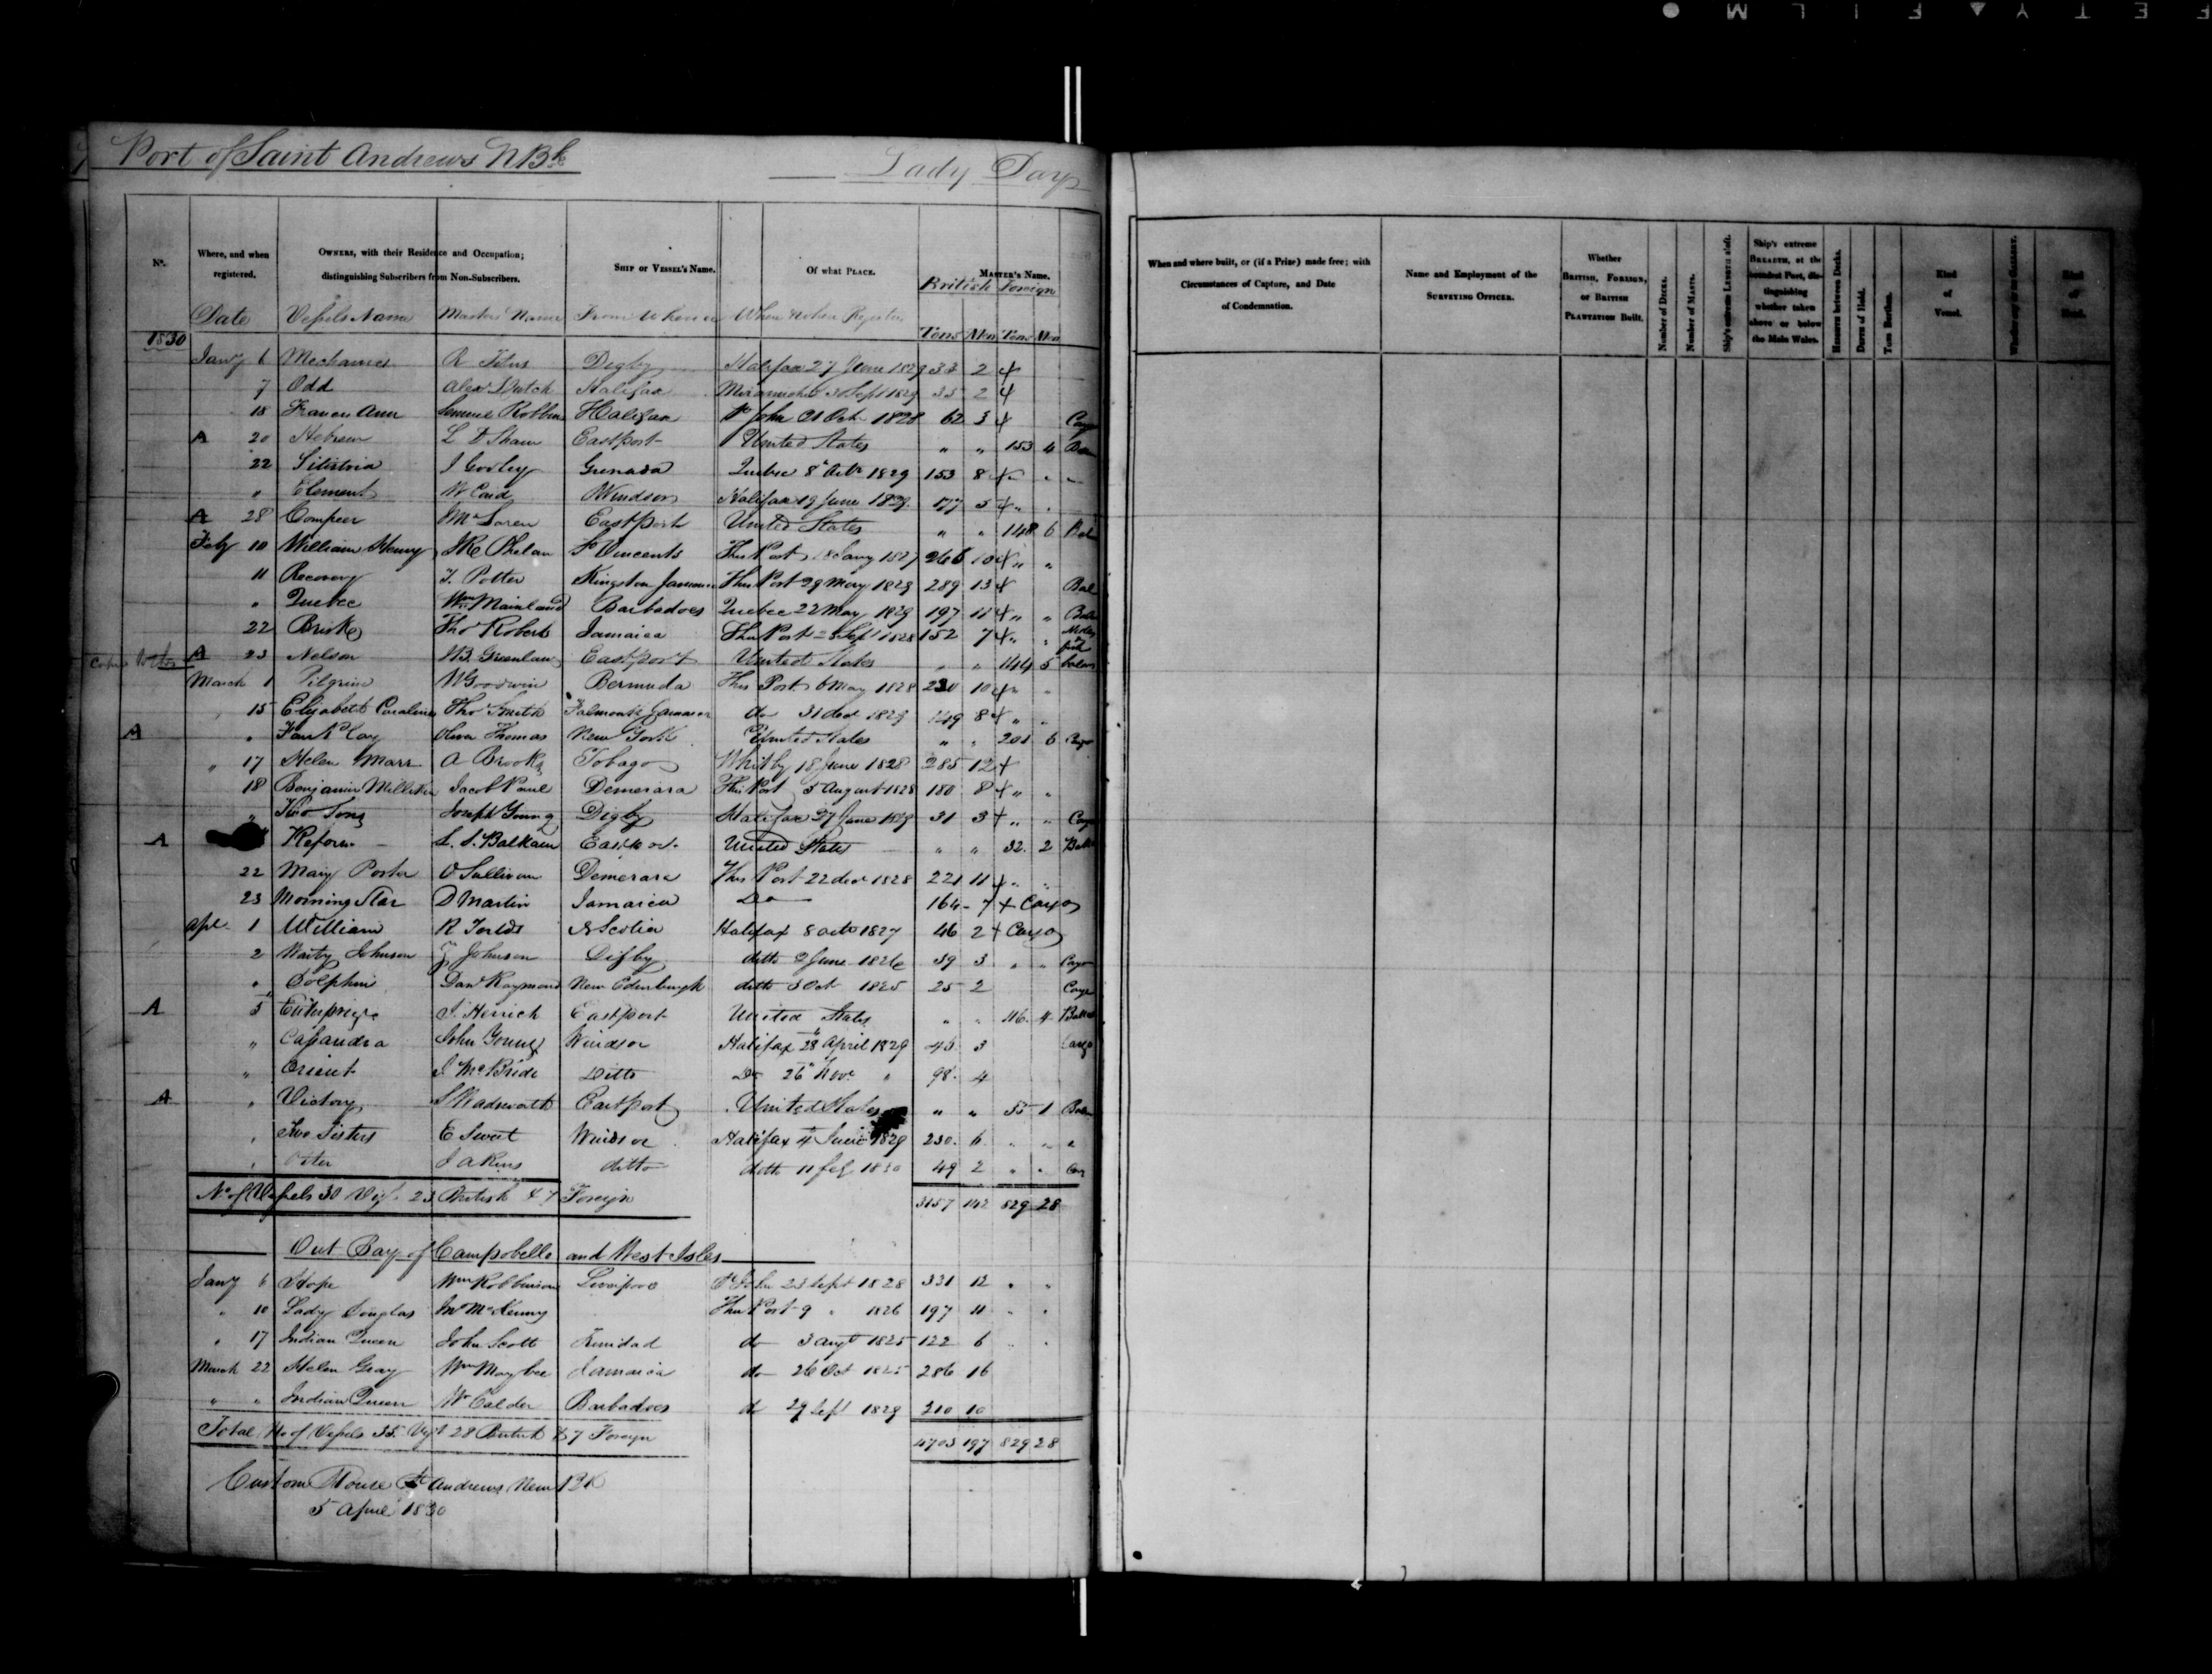 Port of Saint Andrews NBk
Lady Day
No.
Where, and when registered.
OWNERS, with their Residence and Occupation; distinguishing Subscribers from Non-Subscribers.
SHIP or VESSEL'S Name.
Of what PLACE.
MASTER'S Name.
British Foreign
Date Vessels Name Masters Name From Whence When & where Register
Tons Men Tons Men
1830
Jany 6 Mechanics R Titus Digby Halifax 27 June 1829 33 2 +
7 Odd Alexr Halifax Miramichi 30 Sept 1829 35 2 +
18 Frances Ann Samuel Robbins Halifax St John 21 Oct 1828 62 3 +
A 20 Hebrew L D Shaw Eastport United States " " 153 4
22 Silistria J Cooley Grenada Quebec 8 Octr 1829 153 8 +
" Element W Caid Windsor Halifax 19 June 1829 177 5 + "
A 28 Compeer J McLaren Eastport United States " " 148 6 Bal
Feby 10 William Henry J R Phelan St Vincents This Port 18 Jany 1827 266 10 + " "
11 Recovery T. Potter Kingston Jamaica This Port 29 May 1829 289 13 + Bal
" Quebec Wm Mainland Barbadoes Quebec 22 May 1829 197 11 + " "
22 Brisk Thos Roberts Jamaica This Port 28 Sept 1828 152 7 + " "
A 23 Nelson W B. Greenlaw Eastport United States " " 144 5
March 1 Pilgrim W Goodwin Bermuda This Port 6 May 1828 230 10 + "
15 Elizabeth Caroline Thos Smith Falmouth Jamaica do 31 decr 1829 149 8 + "
A " Oliver Thomas New York United States " " 201 6
" 17 Helen Marr A Brooks Tobago Whitby 18 June 1828 285 12 +
18 Benjamin Milliken Jacob Paul Demerara This Port 5 August 1828 180 8 + " "
" Two Sons Joseph Young Digby Halifax 27 June 1829 31 3 + " "
A Reform L. S. Balkam Eastport United States " " 32. 2
22 Mary Porter O Sullivan Demerara This Port 22 decr 1828 221 11 + "
23 Morning Star D Martin Jamaica Do 164 - 7 + Cargo
Apl 1 William R N Scotia Halifax 8 octr 1827 46 2 + Cargo
2 Johnson Johnson Digby ditto 2 June 1826 39 3 " " Cargo
" Dolphin Danl Raymond New Edinburgh ditto 3 Oct 1825 25 2
A 5 Enterprize J. Herrick Eastport United States " " 116. 4
" Cassandra John Young Windsor Halifax 28 April 1829 45 3 Cargo
" Orient J. McBride Ditto Do 26 Novr " 98. 4
A " Victory S Wadsworth Eastport United States " " 55 1
" Two Sisters E Sweet Windsor Halifax 4 June 1829 230. 6 " " "
" J Akins ditto ditto 11 feby 1830 49 2 " "
No of Vessels 30 Vizt. 23 British & 7 Foreign 3157 142 829 28
Out Bay of Campobello and West Isles
Jany 6 Hope Wm Robbinson Liverpool St John 23 Sept 1828 331 12 " "
" 10 Lady Douglas Jno McKenny This Port 9 " 1826 197 11 " "
" 17 Indian Queen John Scott Trinidad do 3 augt 1825 122 6
March 22 Helen Gray Wm Maybee Jamaica do 26 Oct 1825 286 16
" " Indian Queen W Calder Barbadoes do 29 Sept 1829 210 10
Total No of Vessels 35. Vizt 28 British & 7 Foreign 4703 197 829 28
Custom House St Andrews New BK
5 April 1830
When and where built, or (if a Prize) made free; with Circumstances of Capture, and Date of Condemnation.
Name and Employment of the SURVEYING OFFICER.
Whether BRITISH, FOREIGN, or BRITISH PLANTATION Built.
Number of DECKS.
Number of MASTS.
Ship's extreme LENGTH aloft.
Ship's extreme BREADTH, at the broadest Part, distinguishing whether taken above or below the Main Wales.
HEIGHTH between Decks.
DEPTH of Hold.
Tons Burthen.
Kind of Vessel.
Whether any or no GALLERY.
Kind of Head.